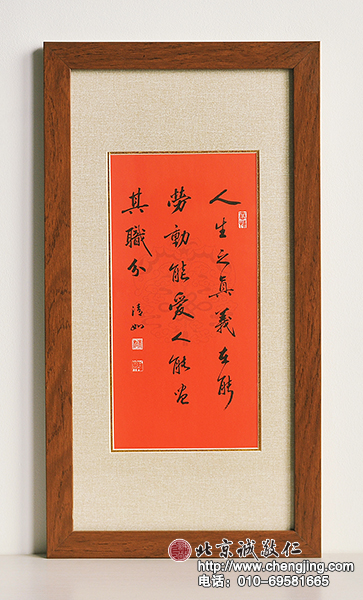 人生之真義在能
勞動能愛人能盡
其職分
清如
北京誠敬仁
http://www.chengjing.com
电话：010-69581665